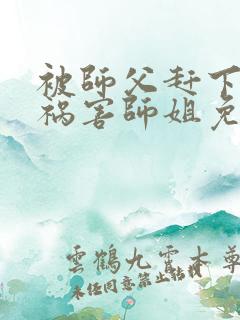 被師父赶下
祸害師姐免
雲鶴九霄本尊
未经同意禁止转载